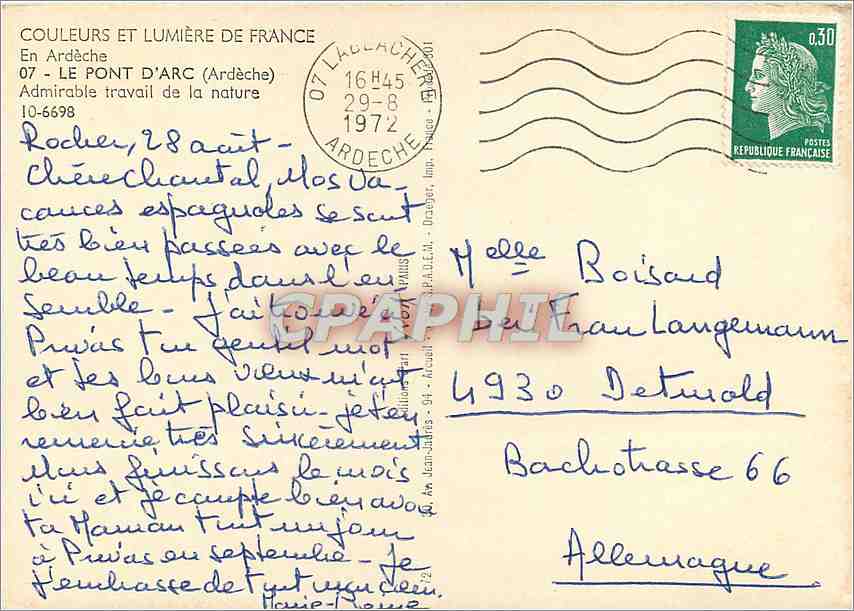 COULEURS ET LUMIÈRE DE FRANCE
En Ardèche
07 - LE PONT D'ARC (Ardèche)
Admirable travail de la nature
10-6698
Rocher, 28 août -
Chère Chantal, Nos va-
cances espagnoles se sont
très bien passées avec le
beau temps dans l'en
semble - J'ai trouvé à
Privas ton gentil mot
et tes bons vœux m'ont
bien fait plaisir - je t'en
remercie très sincèrement
Nous finissons le mois
ici et je compte bien avoir
ta Maman tout un jour
à Privas en septembre - Je
t'embrasse de tout mon cœur.
Marie-Rose
07 LABLACHERE
16H45
29-8
1972
ARDECHE
0,30
POSTES
REPUBLIQUE FRANÇAISE
Av. Jean-Jaurès - 94 - Arcueil - S.P.A.D.E.M. - Draeger, Imp. France -
PARIS
CPAPHIL
Melle Boisard
bei Frau Langemann
4930 Detmold
Bachstrasse 66
Allemagne